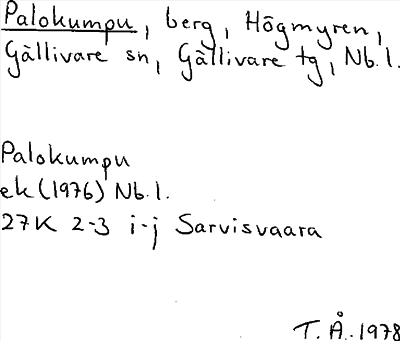 Palokumpu, berg, Högmyren,
Gällivare sn, Gällivare tg, Nb. l.
Palokumpu
ek (1976) Nb. l.
27K 2-3 i-j Sarvisvaara
T. Å. 1978